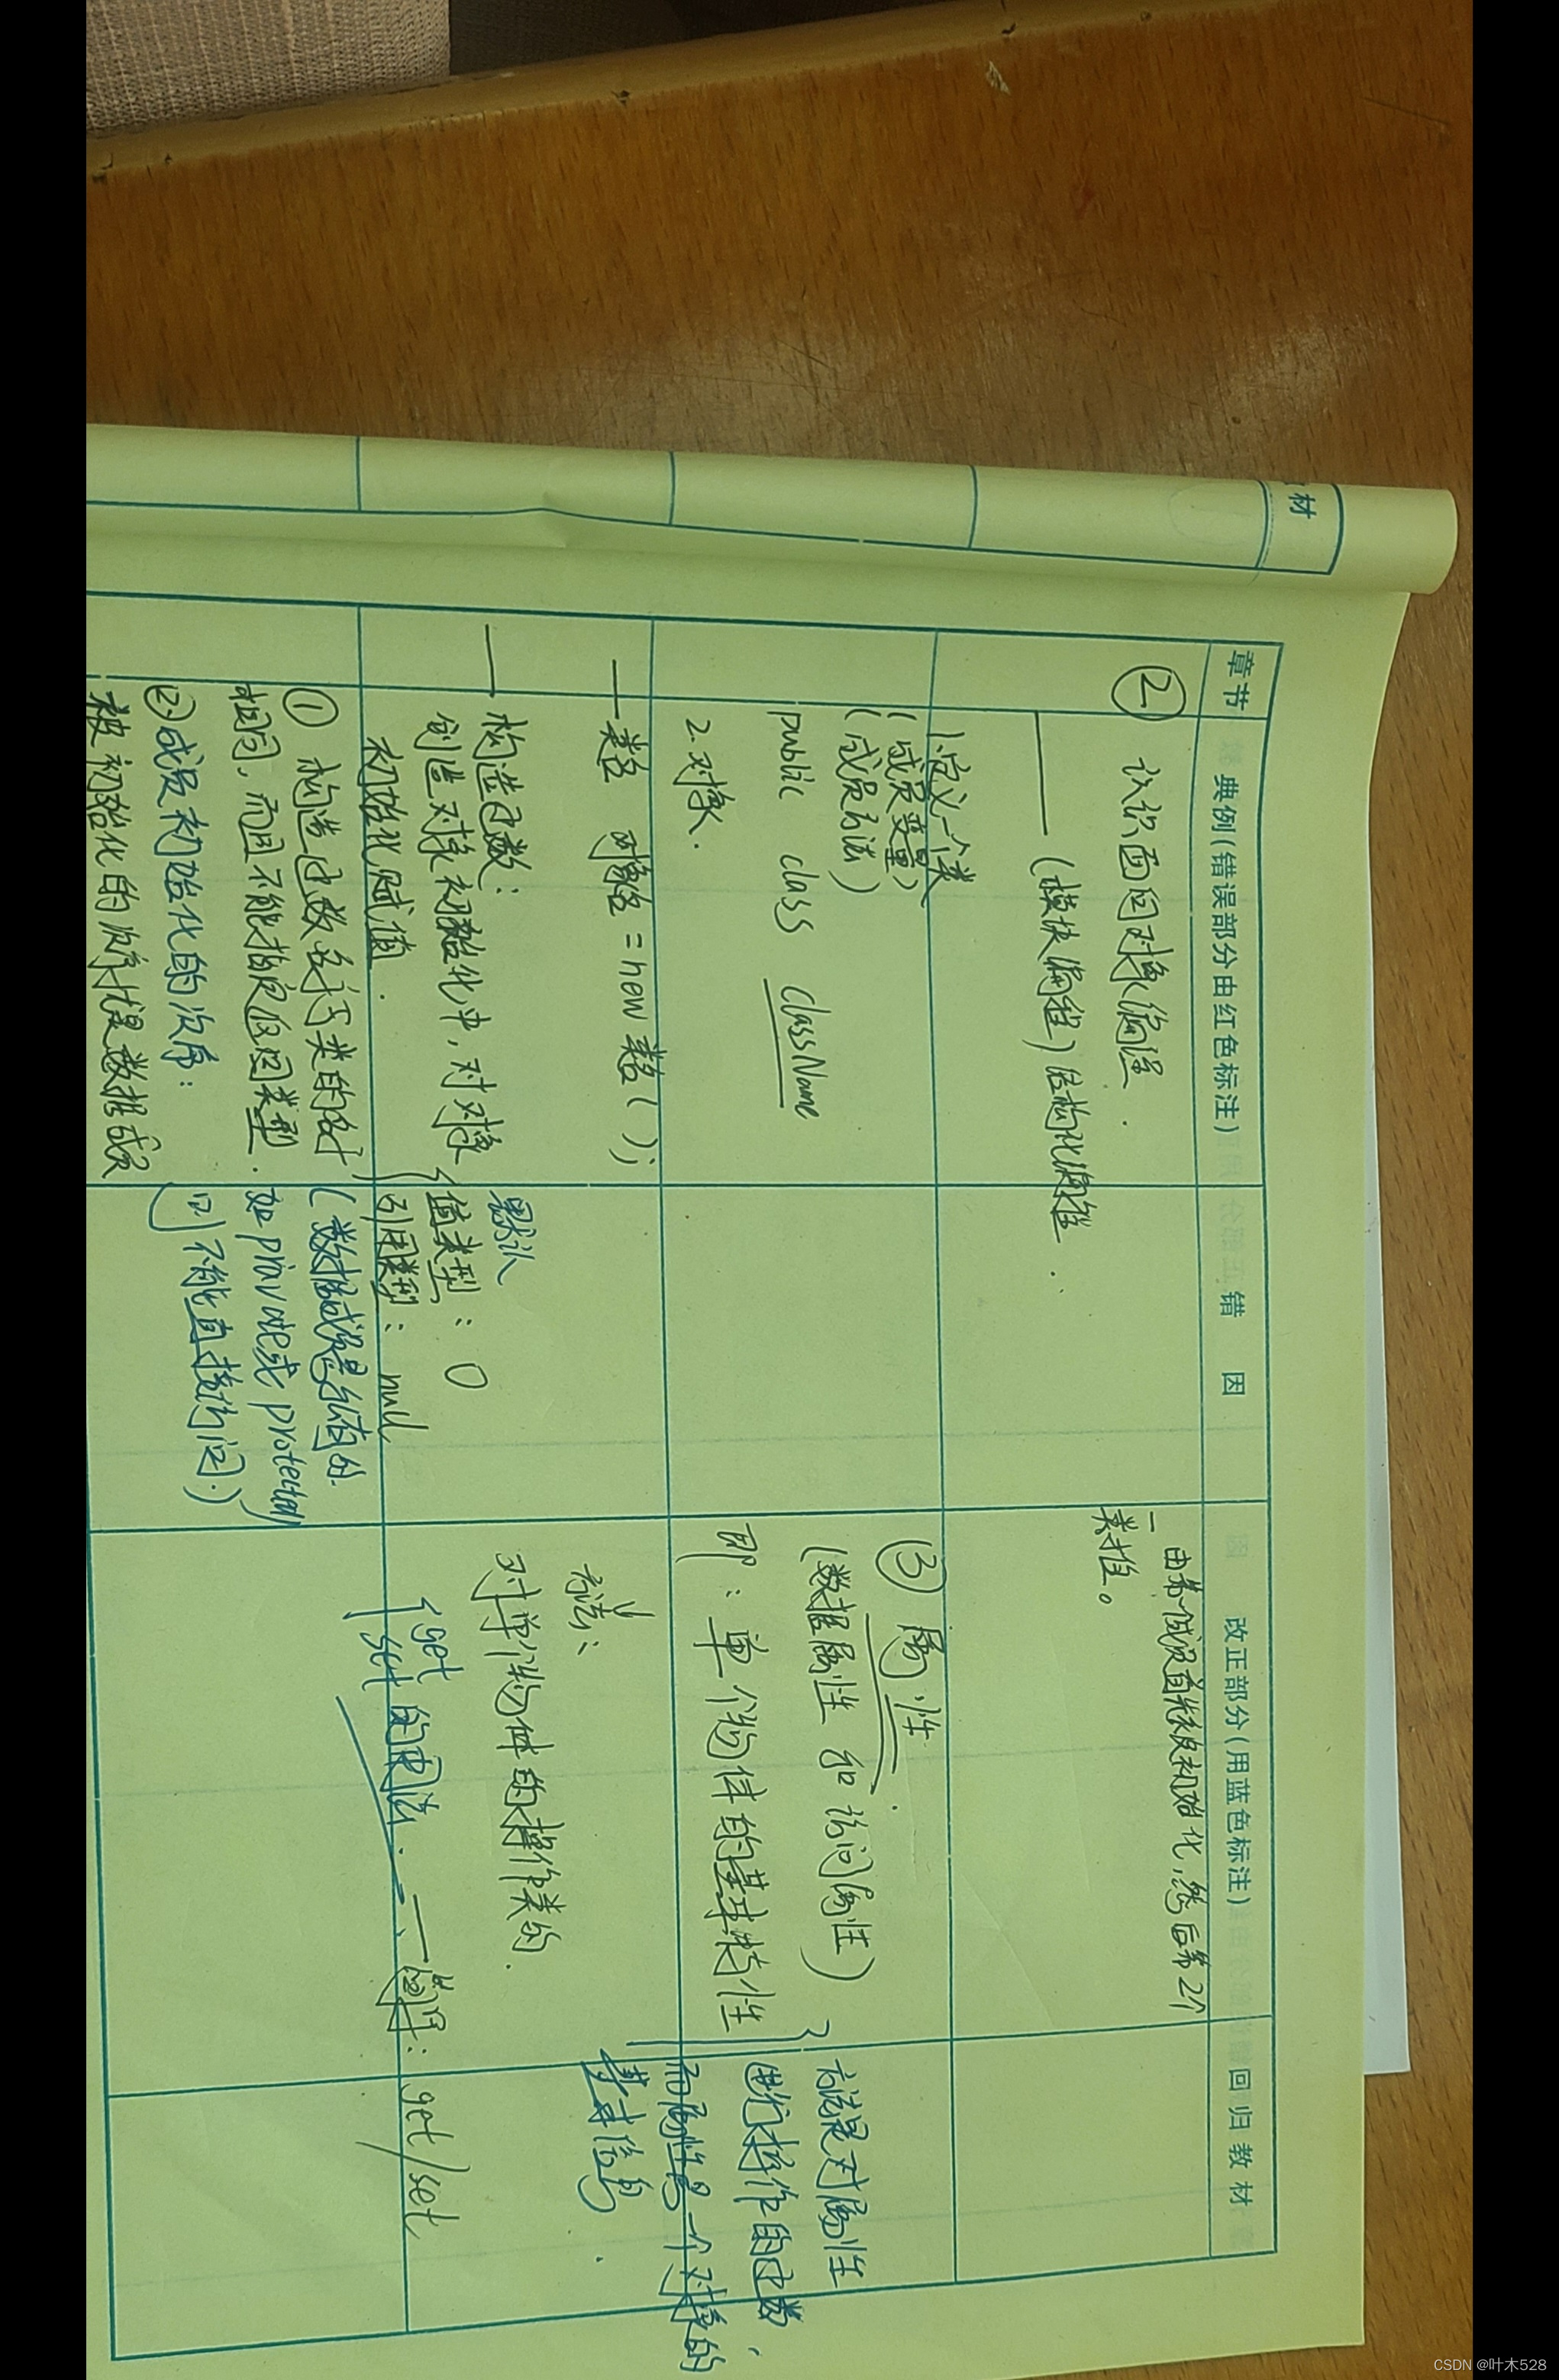 材
章节
典例(错误部分由红色标注)
错 因
改正部分(用蓝色标注)
回归教材
② 认识面向对象编程.
——(模块编程)结构化编程.
1.定义一个类
(成员变量)
(成员方法)
public class className
2.对象.
— 类名 对象名 = new 类名();
— 构造函数:
创造对象初始化中,对对象
初始化赋值.
① 构造函数名字与类的名字
相同,而且不能指定返回类型.
②成员初始化的次序:
被初始化的次序就是数据成员
默认
值类型:0
引用类型:null
(数据成员是私有的.
如private或protected)
不能直接访问.)
— 由第一成员首先被初始化,然后第2个
类推。
③ 属性
(数据属性 和 访问属性)
即:单个物体的基本特性
方法:
对单个物体的操作类的.
get
set 的用法.
get/set
方法是对属性
进行操作的函数,
而属性是一个对象的
基本信息.
CSDN @叶木528